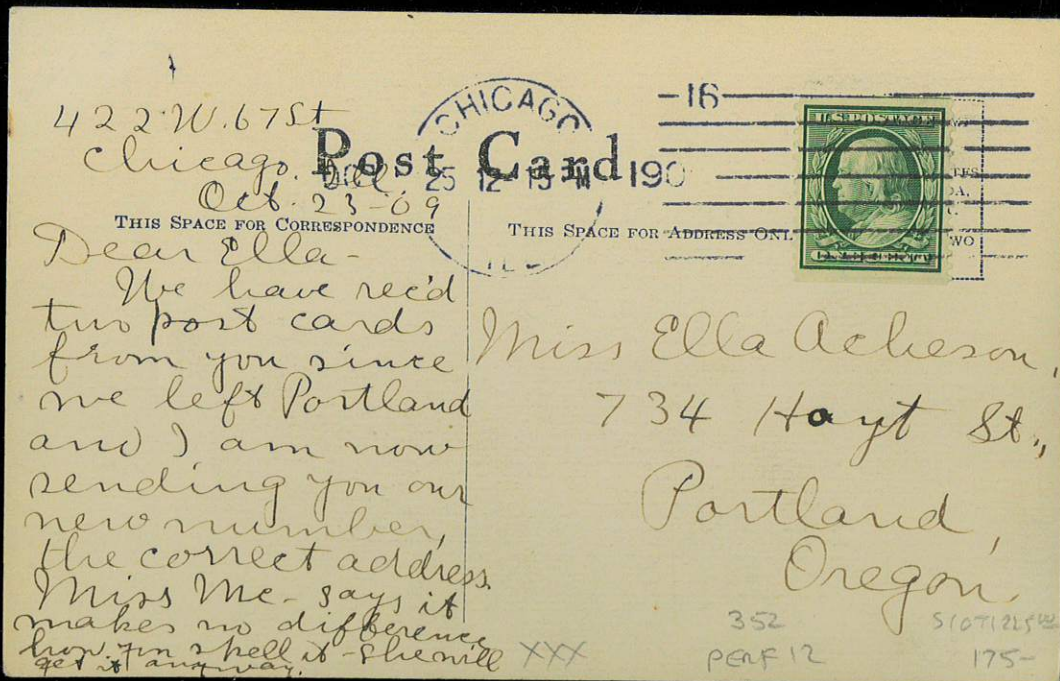 422 W. 67 St
Chicago. Ill.
Oct. 23-09
Post Card
CHICAGO
ILL
OCT 25 12 15 M 190
16
U.S. POSTAGE
ONE CENT
THIS SPACE FOR CORRESPONDENCE
THIS SPACE FOR ADDRESS ONL
WO
Dear Ella-
We have rec'd
two post cards
from you since
we left Portland
and I am now
sending you our
new number,
the correct address.
Miss Mc- says it
makes no difference
how you spell it - She will
get it anyway.
XXX
Miss Ella Acheson,
734 Hoyt St.,
Portland,
Oregon.
352
PERF 12
175-